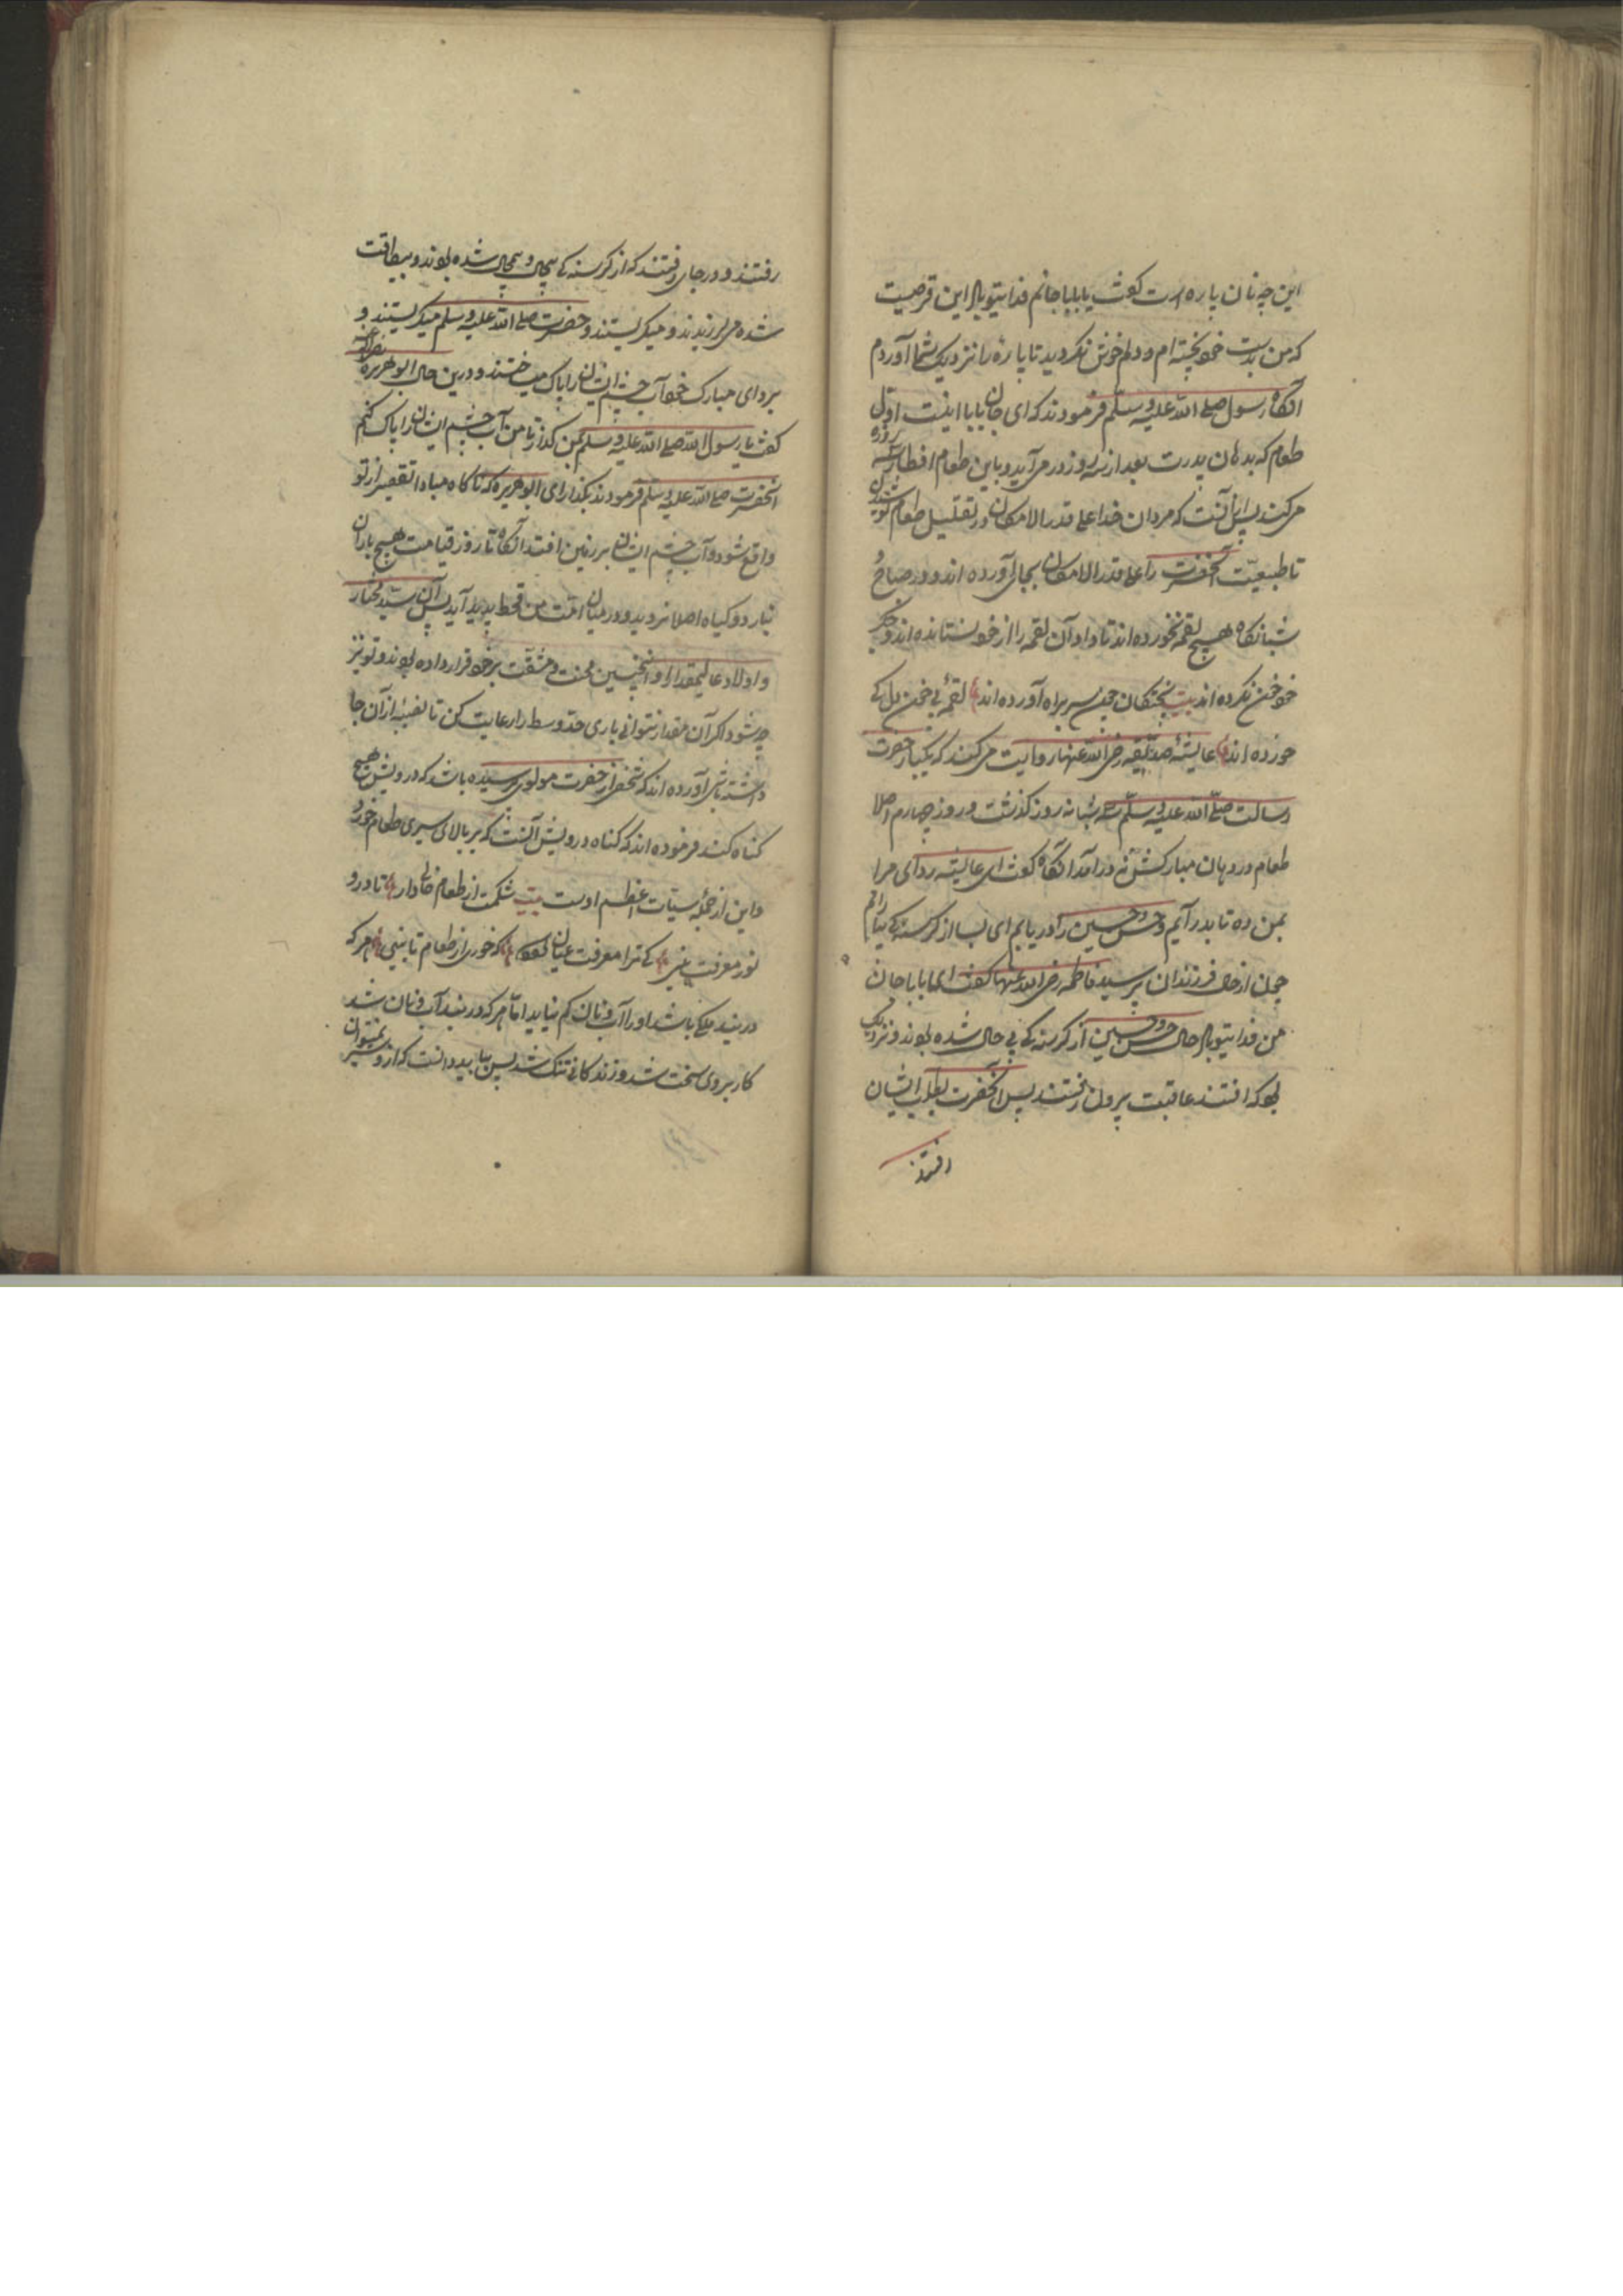 این چه نان پاره است گفت یا بابا جانم فدایتو باد این قرصیست
که من بدست خود پخته ام و دلم خوش نکردید تا پاره را نزدیک شما آوردم
آنگاه رسول صلی الله علیه و سلم فرمودند که ای جان بابا اینست اول
طعام که بدهان پدرت بعد از سه روز در می آید و باین طعام افطار سه روزه
می کند پس از آنست که مردان خدا علی قدر الامکان در تقلیل طعام کوشیدن
تا طبیعت آنحضرت را علی قدر الامکان بجا آورده اند و در صباح و
شبانگاه هیچ لقمه نخورده اند تا داد آن لقمه را از خود نستانده اند و جگر
خود خون نکرده اند بیت پختکان چون سر براه آورده اند لقمهٔ بی خون دل کی
خورده اند عایشهٔ صدیقه رضی الله عنها روایت می کند که یکبار حضرت
رسالت صلی الله علیه و سلم سه شبانه روز گذشت و روز چهارم اصلا
طعام در دهان مبارکش نه درآمد آنگاه گفت ای عایشه ردای مرا
بمن ده تا بدر آیم و حسن و حسین را دریابم ای بسا از گرسنه کی
چون از حال فرزندان پرسید فاطمه رضی الله عنها گفت ای بابا جان
من فدایتو باد حال حسن و حسین از گرسنه کی بی حال شده بودند و نزدیک
بود که افتند عاقبت بیرون رفتند پس آنحضرت بطلب ایشان
رفتند
رفتند و در جای رفتند که از گرسنه کی بیجان و بیمجال شده بودند و بیطاقت
شده می لرزیدند و میگریستند و حضرت صلی الله علیه و سلم میگریستند و
بردای مبارک خود آب چشم ایشان را پاک میساختند و درین حال ابو هریره رضی الله عنه
گفت یا رسول الله صلی الله علیه و سلم بمن گذار تا من آب چشم ایشان را پاک کنم
آنحضرت صلی الله علیه و سلم فرمودند بگذار ای ابو هریره که ناگاه مبادا تقصیر از تو
واقع شود و آب چشم ایشان بر زمین افتد آنگاه تا روز قیامت هیچ باران
نبارد و گیاه اصلا نروید و در میان امت من قحط پدید آید پس آن سید مختار
و اولاد عالیمقدار او اینچنین محنت و مشقت بر خود قرار داده بودند و تو نیز
چه شود اگر آن مقدار نتوانی باری حد وسط را رعایت کن تا نصیبهٔ از آن جا
داشته باشی آورده اند که شخصی از حضرت مولوی پرسیده باشد که درویش هیچ
گناه کند فرموده اند که گناه درویش آنست که بر بالای سیری طعام خورد
و این از جملهٔ سیئات اعظم اوست بیت شکمت از طعام خالی دار تا درو
نور معرفت بینی کی ترا معرفت عیان گردد که خوری از طعام تا بینی هر که
در بند ملکی باشد او را آب و نان کم نیاید اما هر که در بند آب و نان شد
کار بروی سخت شد و زندگانی تنگ شد پس بباید دانست که از